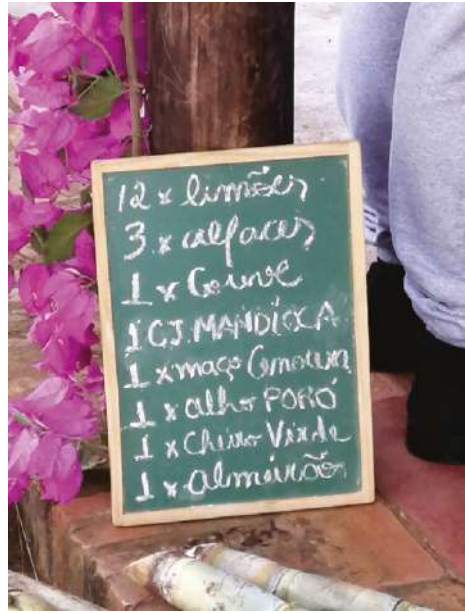 12 x limões
3 x alfaces
1 x Couve
1 CJ. MANDIOCA
1 x maço Cenoura
1 x alho PORÓ
1 x Cheiro Verde
1 x almeirão